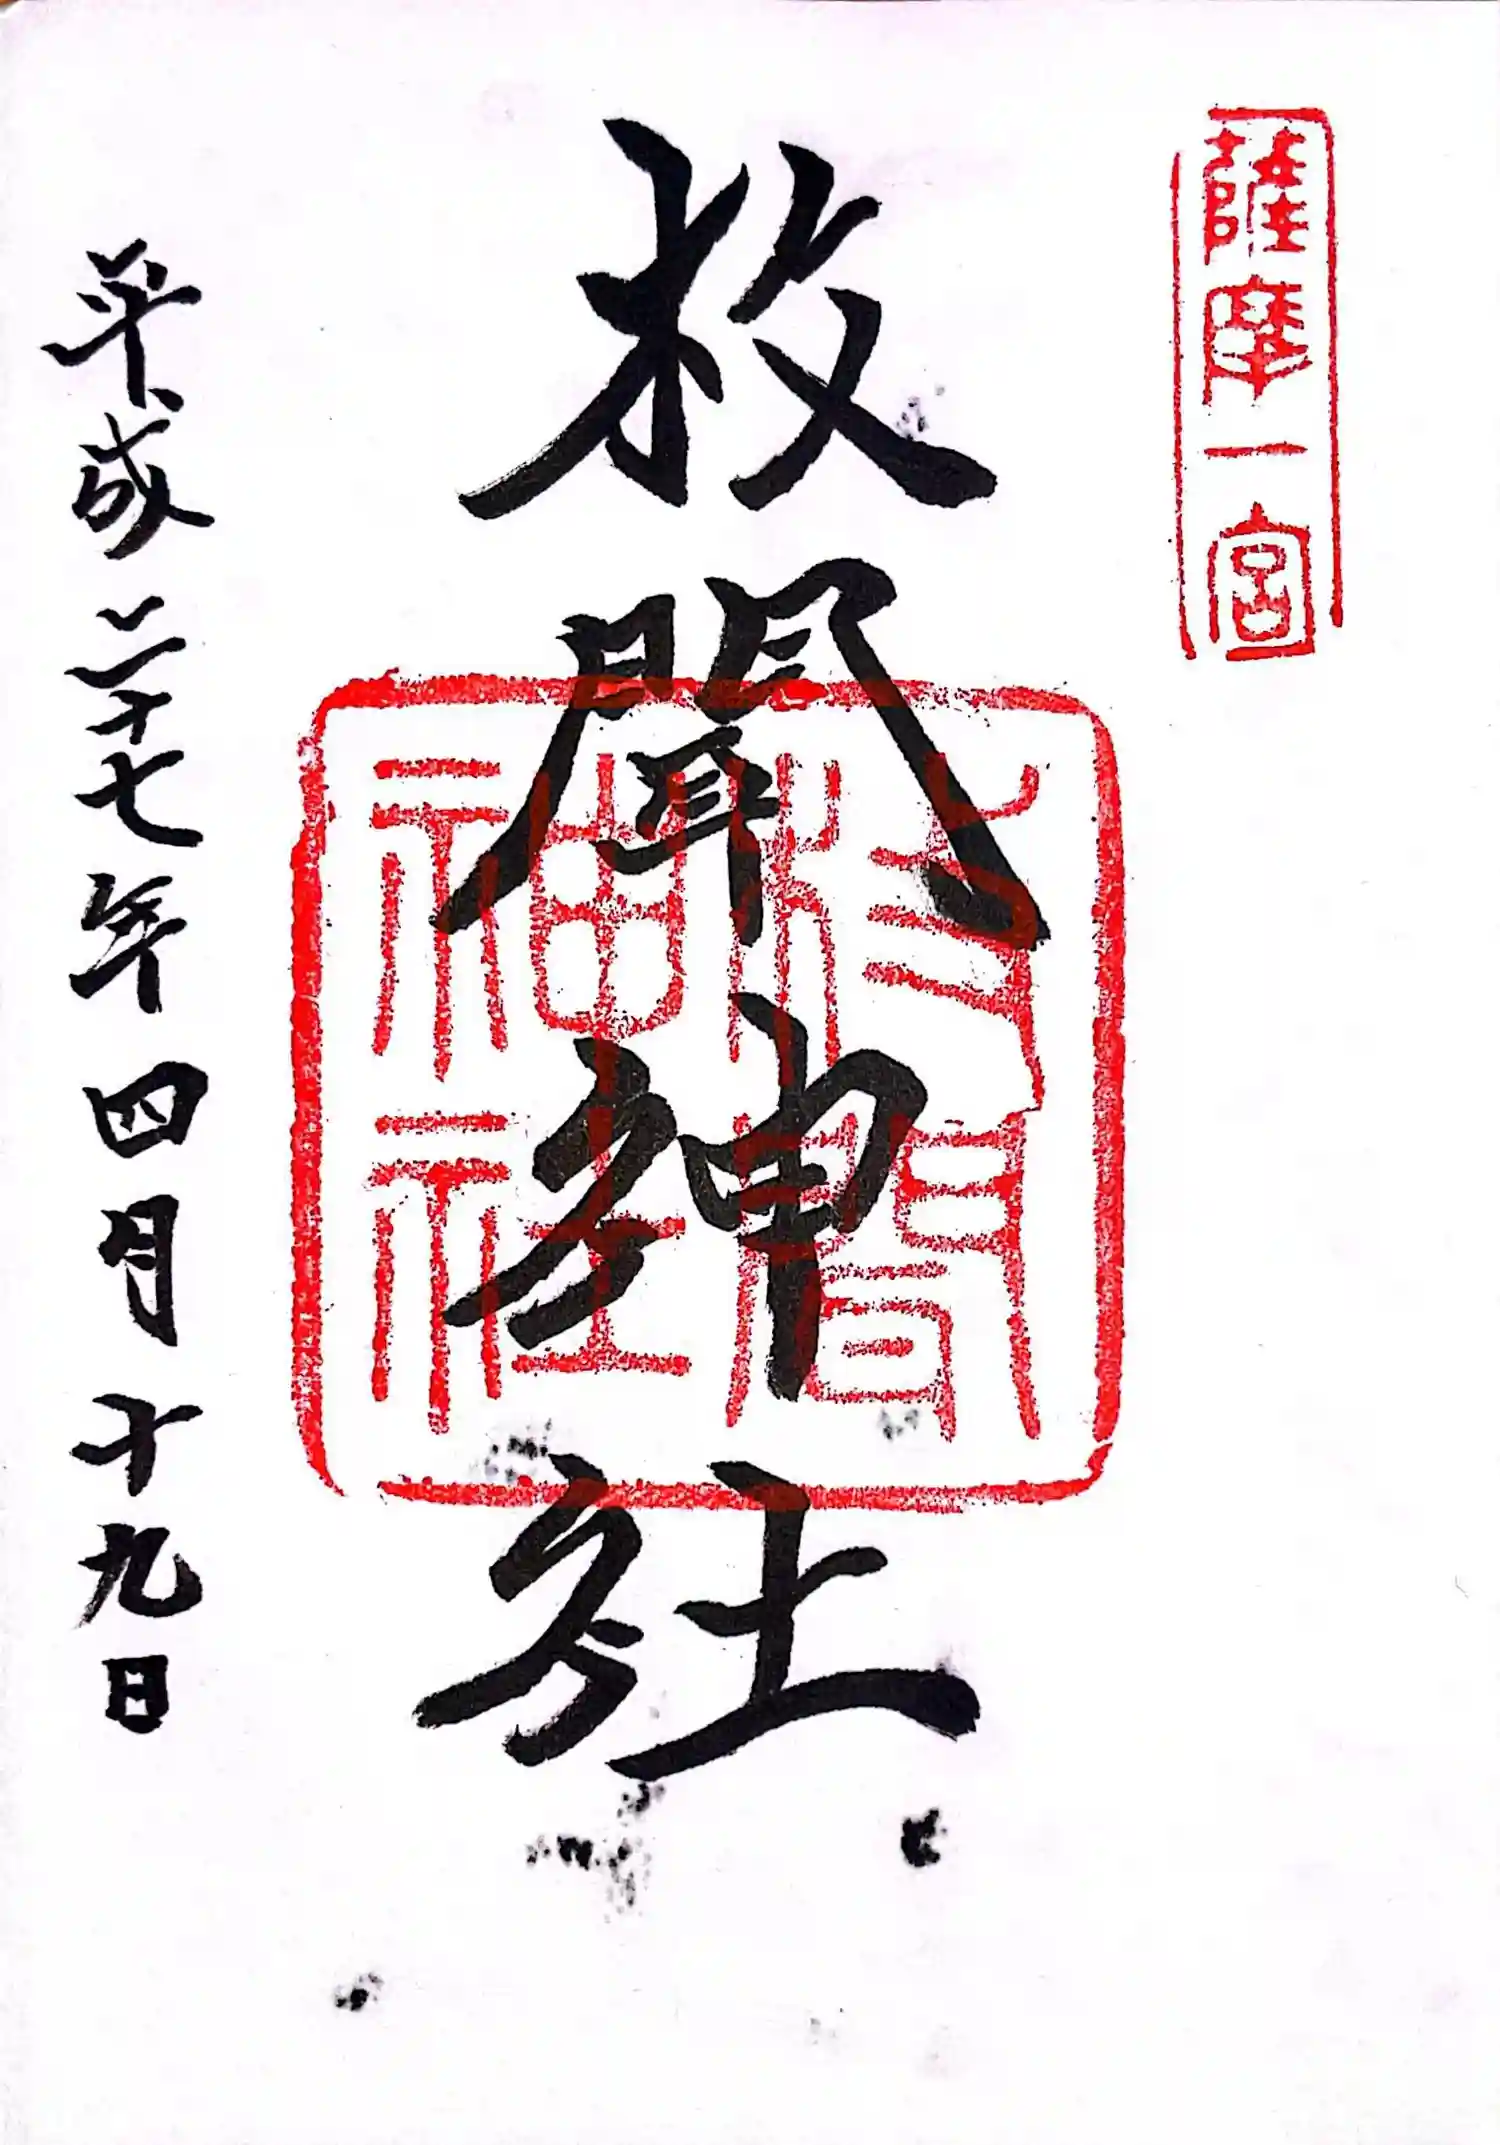 薩摩一宮
枚聞神社
神社
平成二十七年四月十九日